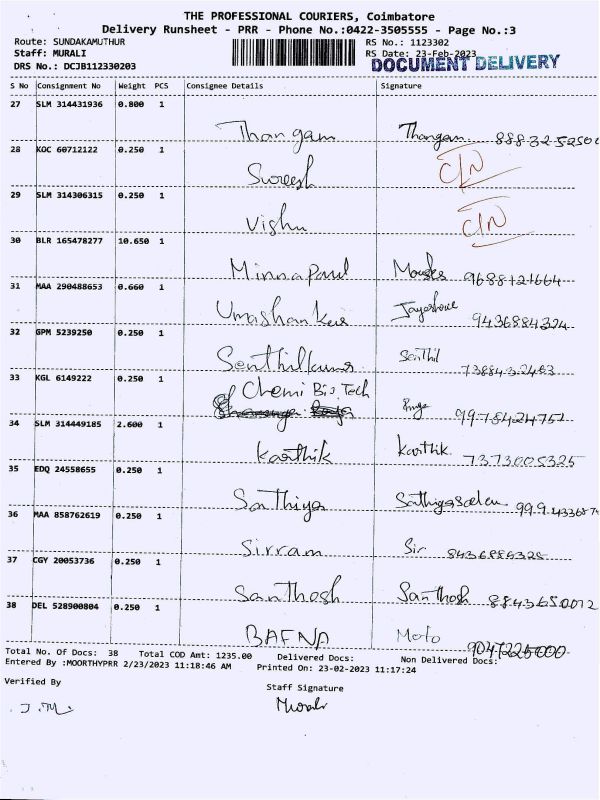 THE PROFESSIONAL COURIERS, Coimbatore
Delivery Runsheet - PRR - Phone No.:0422-3505555 - Page No.:3
Route: SUNDAKAMUTHUR RS No.: 1123302
Staff: MURALI RS Date: 23-Feb-2023
DRS No.: DCJB112330203 DOCUMENT DELIVERY
S No Consignment No Weight PCS Consignee Details Signature
27 SLM 314431936 0.800 1
Thangam Thangam 888325250
28 KOC 60712122 0.250 1
Suresh C/N
29 SLM 314306315 0.250 1
Vishnu C/N
30 BLR 165478277 10.650 1
Minnapaul 9688121664
31 MAA 290488653 0.660 1
Umashankar 9436884324
32 GPM 5239250 0.250 1
Senthilkumar Senthil 7388432463
33 KGL 6149222 0.250 1
Chemi Bio Tech
9978424751
34 SLM 314449185 2.600 1
Karthik Karthik 7373005325
35 EDQ 24558655 0.250 1
Sathiya
36 MAA 858762619 0.250 1
Sirram Sir 8436884325
37 CGY 20053736 0.250 1
Santhosh Santhosh 8843650012
38 DEL 528900804 0.250 1
BAFNA Moto 9047225000
Total No. Of Docs: 38 Total COD Amt: 1235.00 Delivered Docs: Non Delivered Docs:
Entered By :MOORTHYPRR 2/23/2023 11:18:46 AM Printed On: 23-02-2023 11:17:24
Verified By Staff Signature
J.M Murali